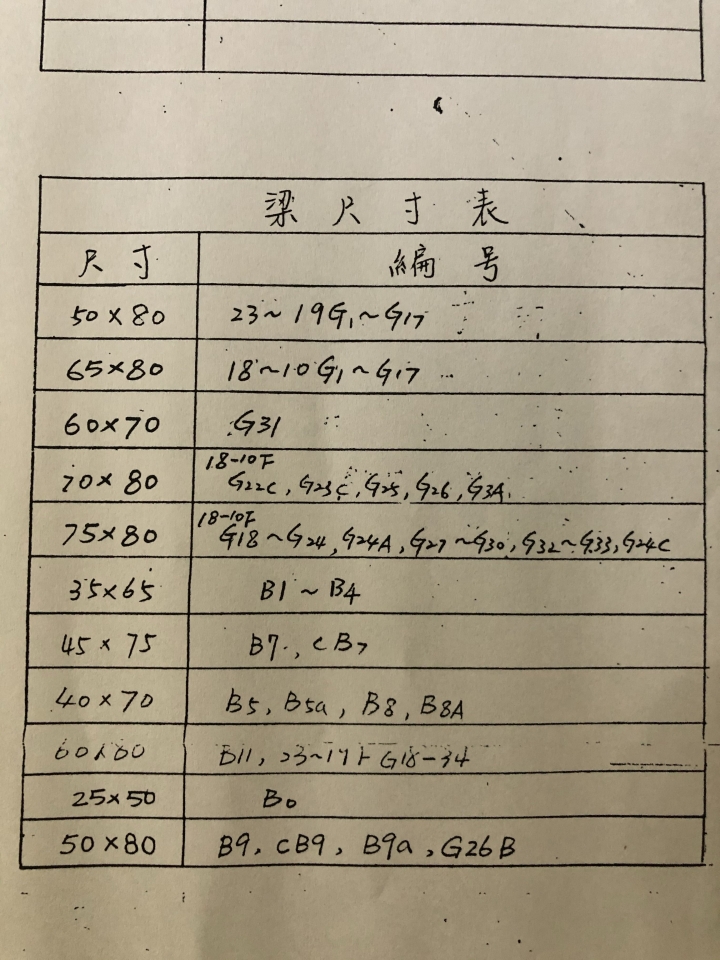 梁尺寸表
尺寸 編号
50×80 23~19G1~G17
65×80 18~10G1~G17
60×70 G31
18-10F
70×80 G22C, G23C, G25, G26, G3A
18-10F
75×80 G18~G24, G24A, G27~G30, G32~G33, G24C
35×65 B1~B4
45×75 B7, CB7
40×70 B5, B5a, B8, B8A
B11, G18-34
25×50 B0
50×80 B9, CB9, B9a, G26B